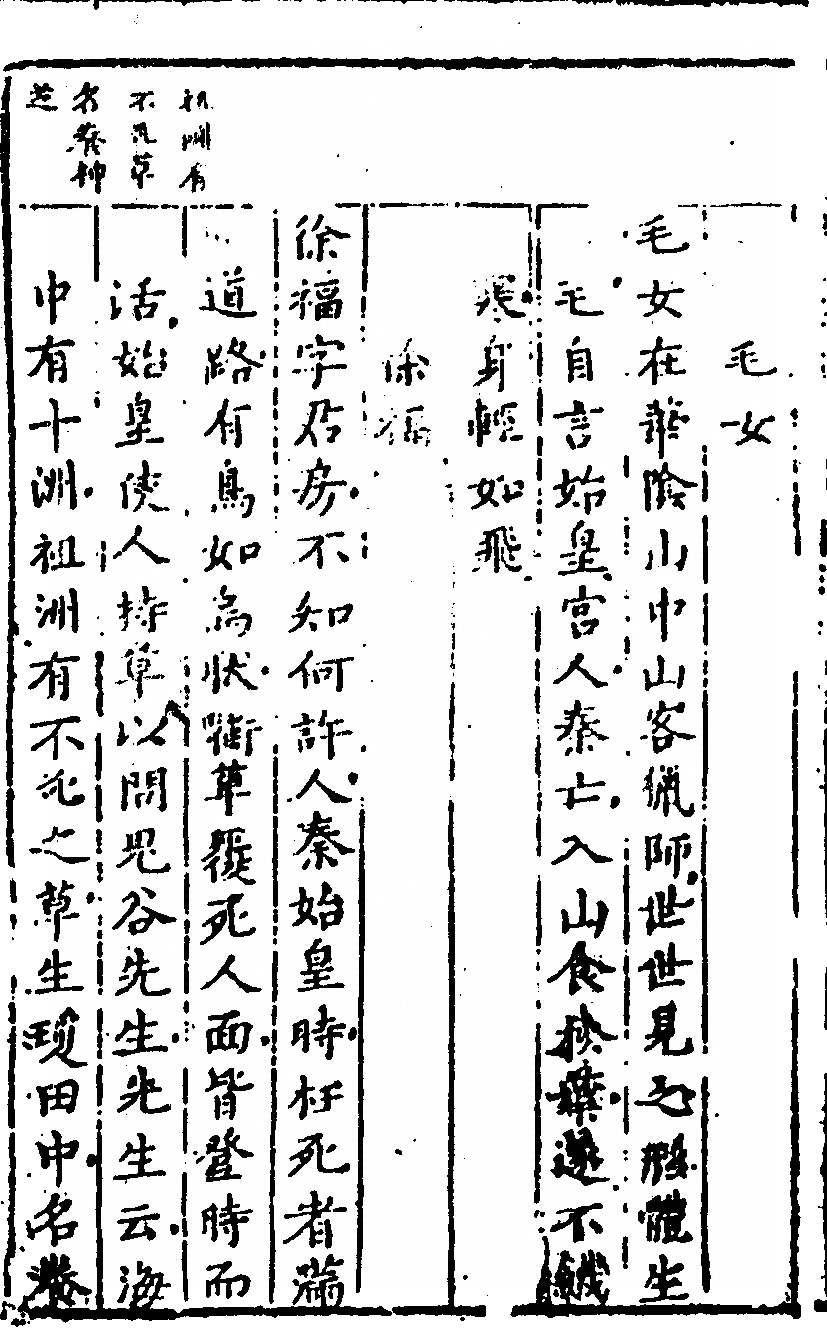 毛女
毛女在華陰山中山客獵師世世見之形體生
毛自言始皇宮人秦亡入山食松葉遂不饑
寒身輕如飛
徐福
徐福字君房不知何許人秦始皇時枉死者滿
道路有鳥如烏狀銜草覆死人面皆登時而
活始皇使人持草以問鬼谷先生先生云海
中有十洲祖洲有不死之草生瓊田中名養
祖洲有
不死草
名養神
芝